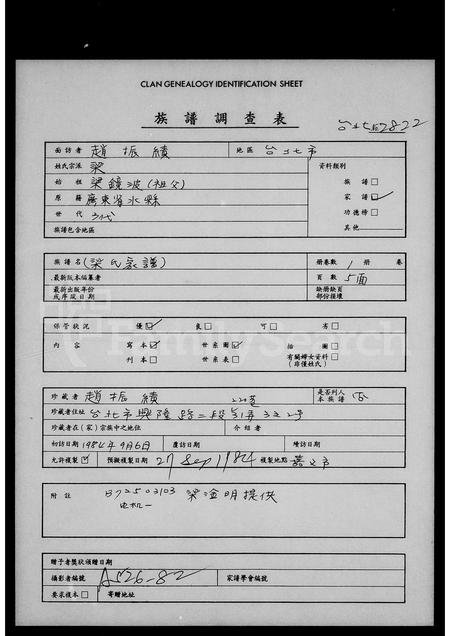 CLAN GENEALOGY IDENTIFICATION SHEET
族譜調查表
台北縣2822
面訪者 趙振績 地區 台北市
姓氏宗派 梁 資料類別
始祖 梁鏡波(祖父) 族譜□
原籍 廣東省水縣 家譜☑
世代 3代 功德榜□
族譜包含地區 其他
族譜名 (梁氏家譜) 冊卷數 1 冊 卷
最新版本編纂者 頁數 5面
最新出版年份或序說日期 缺冊缺頁部份損壞
保管狀況 優☑ 良□ 可□ 劣□
內容 寫本☑ 世系圖☑ 插圖□
刊本□ 世系表□ 有關婦女資料(非僅姓氏)□
珍藏者 趙振績 是否列入本族譜 否
珍藏者住址 台北市興隆路二段
珍藏者在(家)宗族中之地位 介紹者
初訪日期 1984年9月6日 覆訪日期 續訪日期
允許複製☑ 預擬複製日期 27 Sep 1984 複製地點 嘉義市
附註 B722503103 梁淦明提供
電机一
贈予者獎狀頒贈日期
攝影者編號 A526-82 家譜學會編號
要求複本□ 寄贈地址
FamilySearch